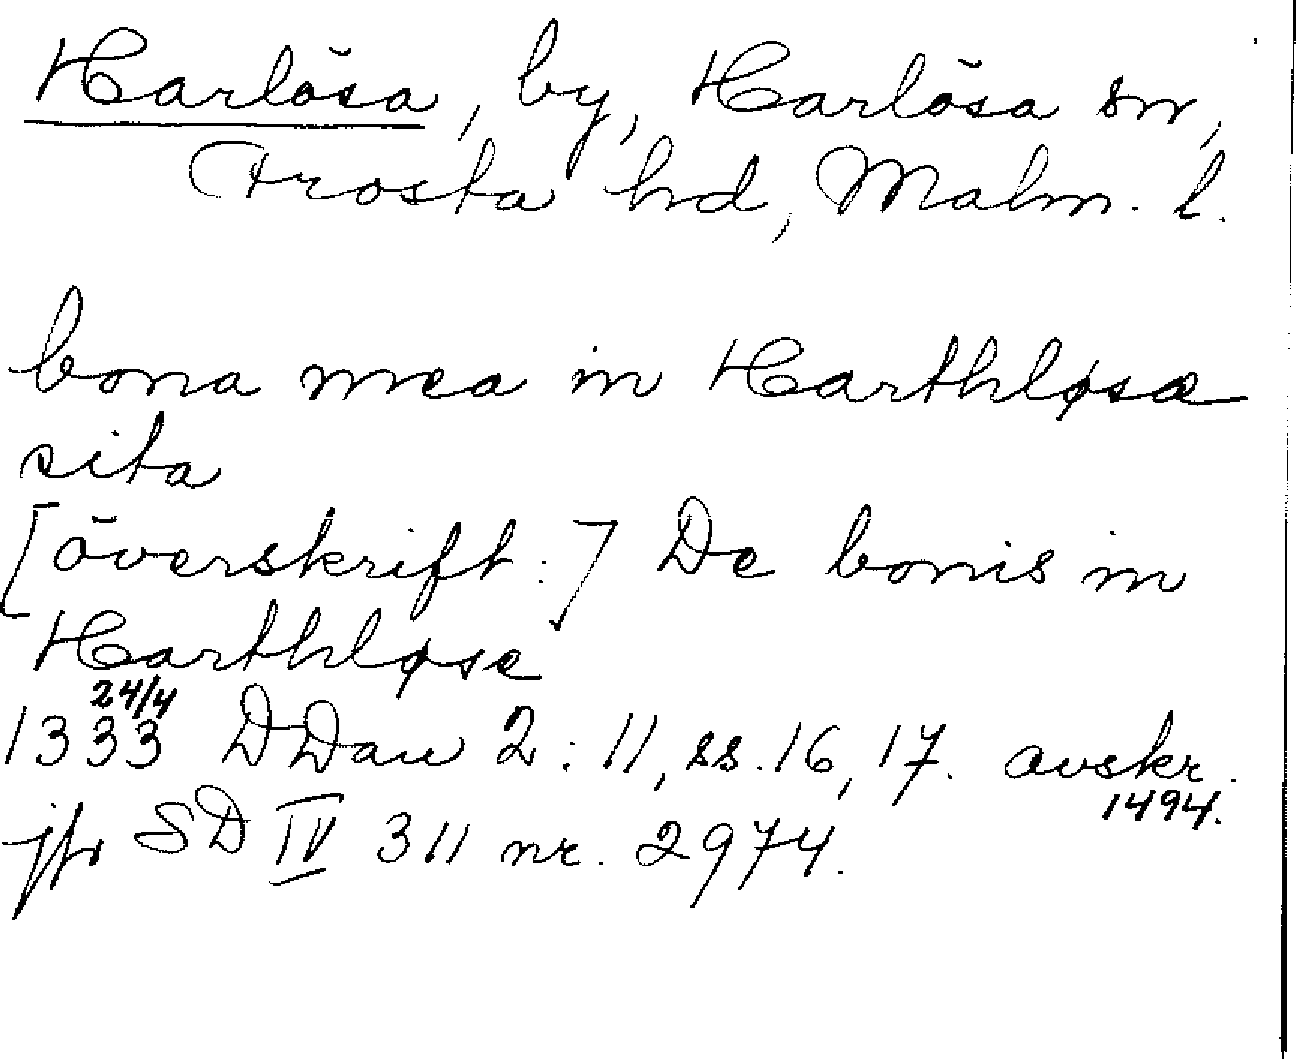 Harlösa, by, Harlösa sn,
Frosta hd, Malm. l.
bona mea in Harthløsæ
sita
[överskrift:] De bonis in
Harthløse
24/4
1333 DDan 2:11, ss. 16, 17. avskr.
1494.
jfr SD IV 311 nr. 2974.